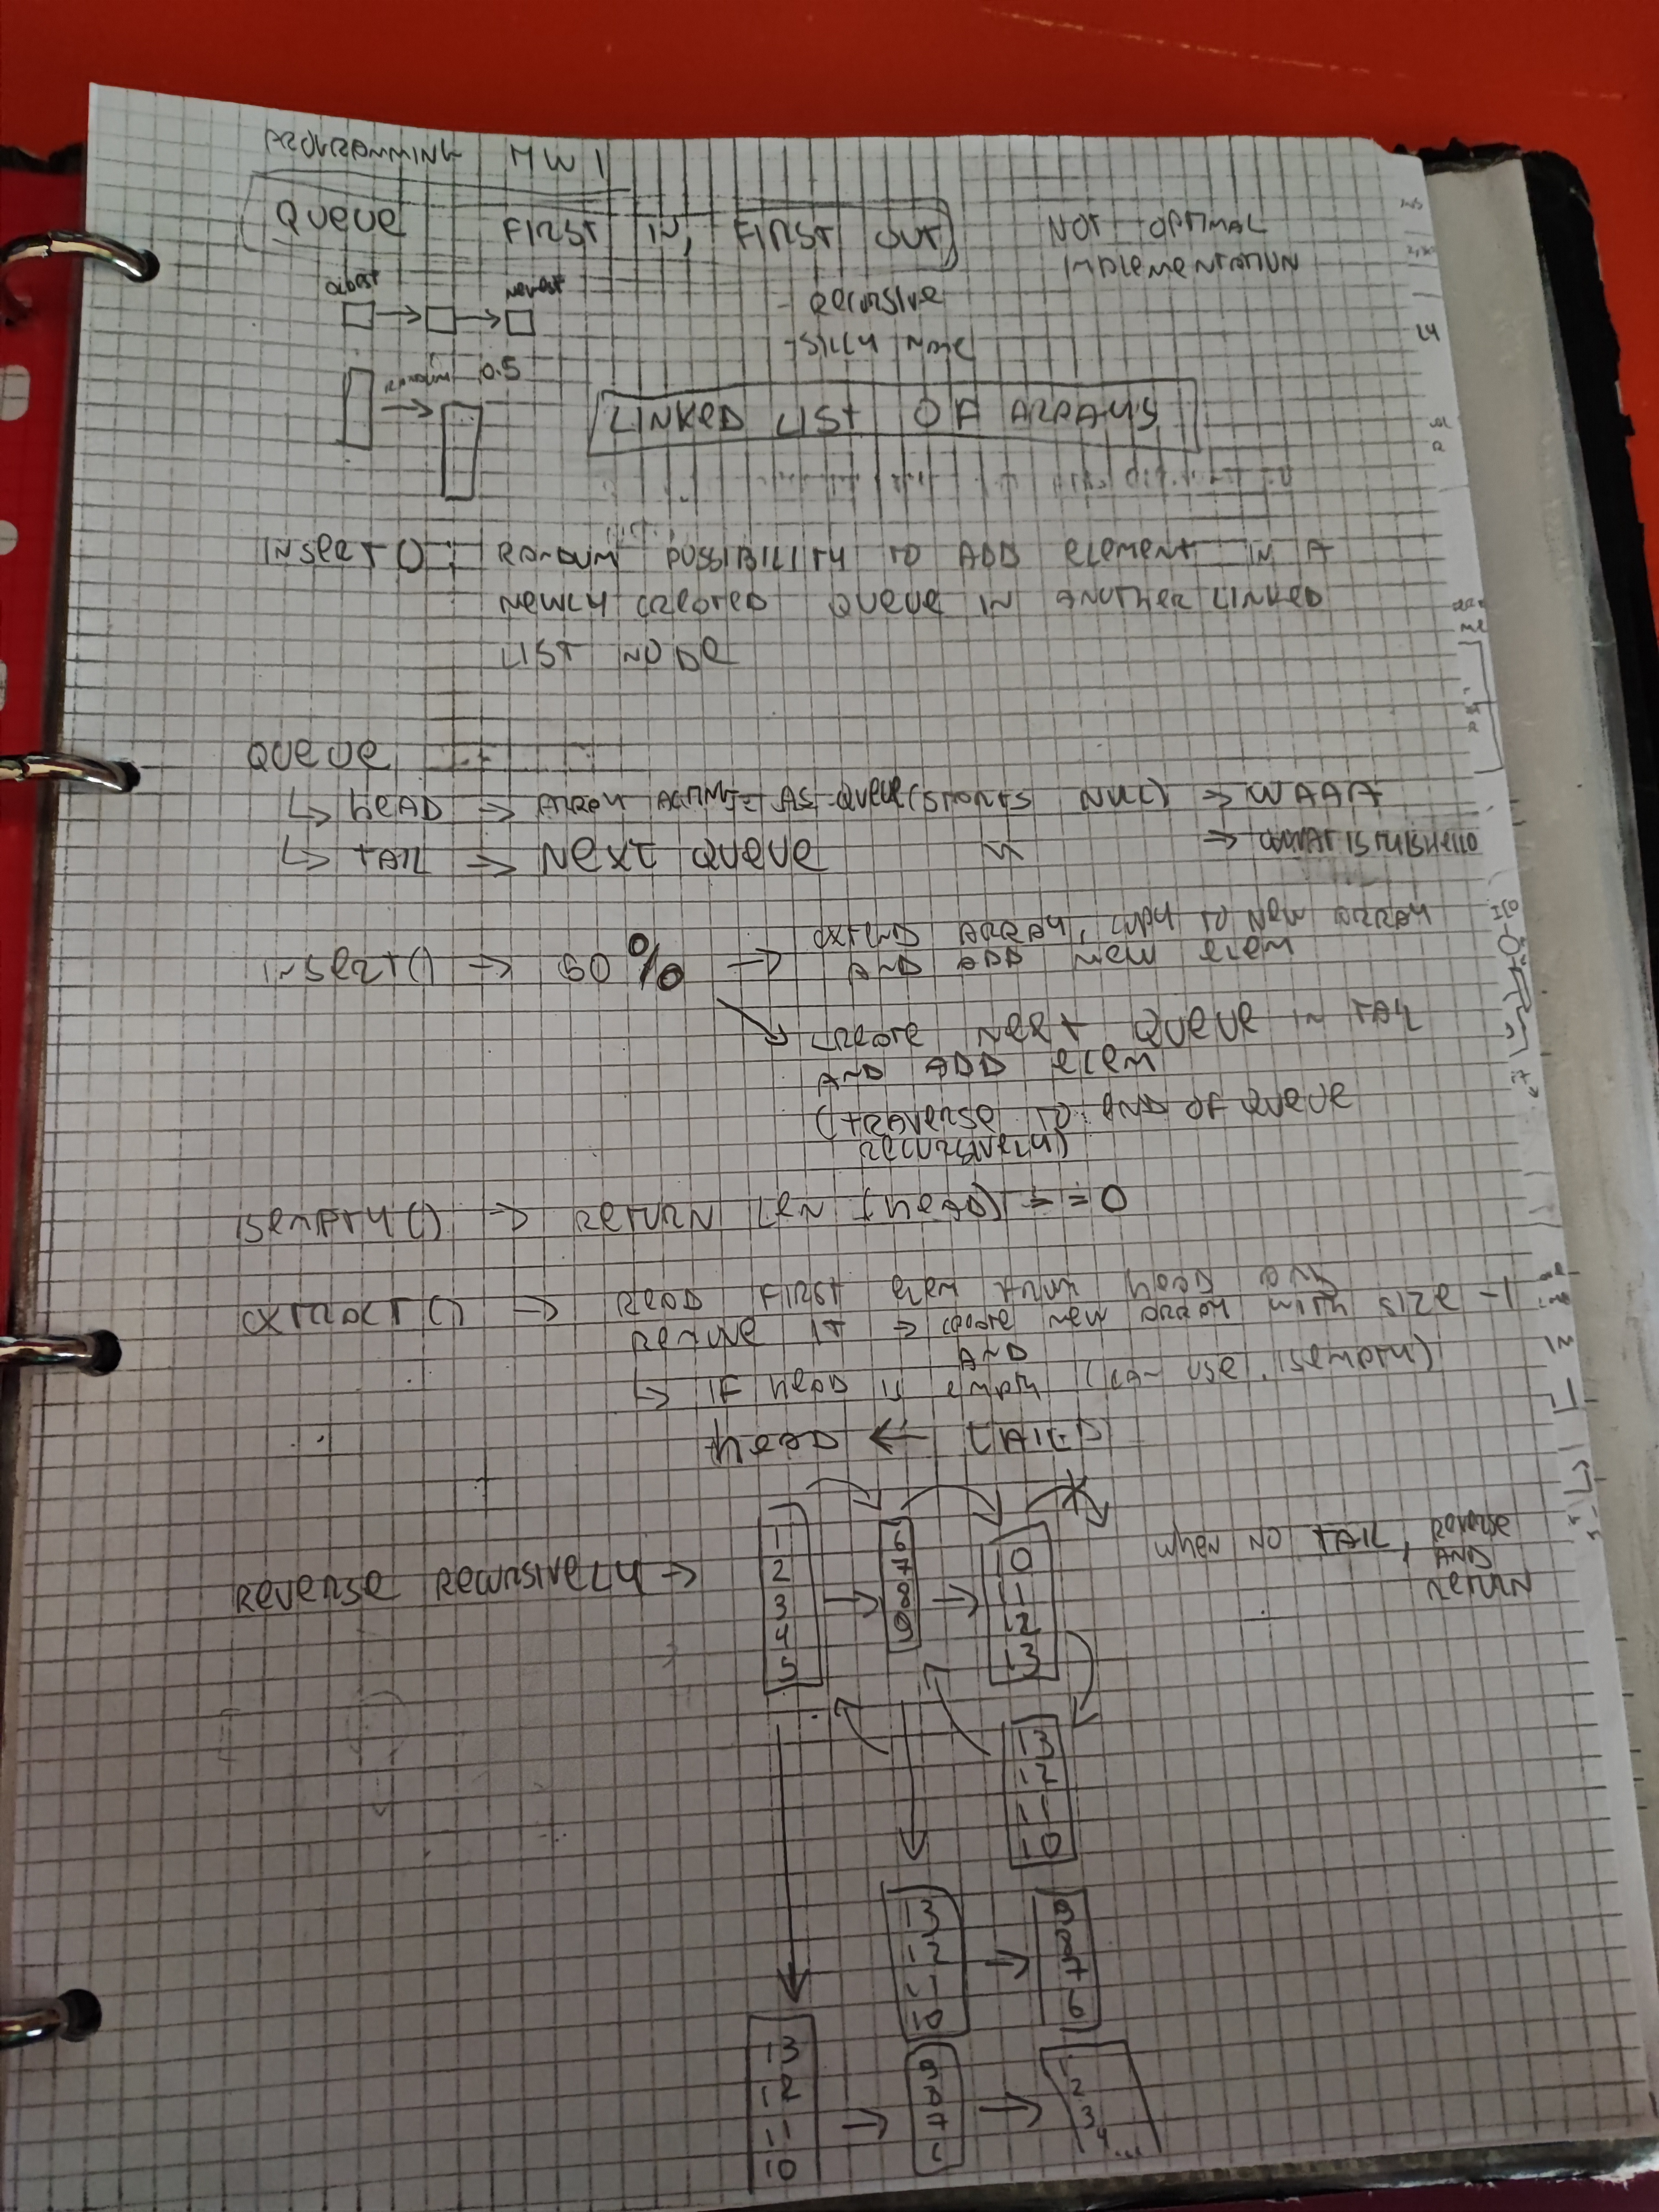 PROGRAMMING HW 1
QUEUE FIRST IN, FIRST OUT
NOT OPTIMAL
IMPLEMENTATION
oldest newest
- RECURSIVE
- SILLY
RANDOM 0.5
LINKED LIST OF ARRAYS
INSERT(): RANDOM POSSIBILITY TO ADD ELEMENT IN A
NEWLY CREATED QUEUE IN ANOTHER LINKED
LIST NODE
QUEUE
↳ HEAD → ARRAY ACTING AS QUEUE (STORES → WAAA
↳ TAIL → NEXT QUEUE → WHAT IS THIS HELLO
INSERT() → 60 % → EXTEND ARRAY, COPY TO NEW ARRAY
AND ADD NEW ELEM
↘ CREATE NEXT QUEUE IN TAIL
AND ADD ELEM
(TRAVERSE TO END OF QUEUE
RECURSIVELY)
ISEMPTY() → RETURN LEN (HEAD) == 0
EXTRACT() → READ FIRST ELEM FROM HEAD
REMOVE IT → CREATE NEW ARRAY WITH SIZE -1
AND
↳ IF HEAD IS EMPTY (CAN USE ISEMPTY()
HEAD ←
REVERSE RECURSIVELY →
WHEN NO TAIL, REVERSE
AND
RETURN
1
2
3
4
5
6
7
8
9
10
11
12
13
13
12
11
10
13
12
11
10
9
8
7
6
13
12
11
10
9
8
7
6
1
2
3
4...